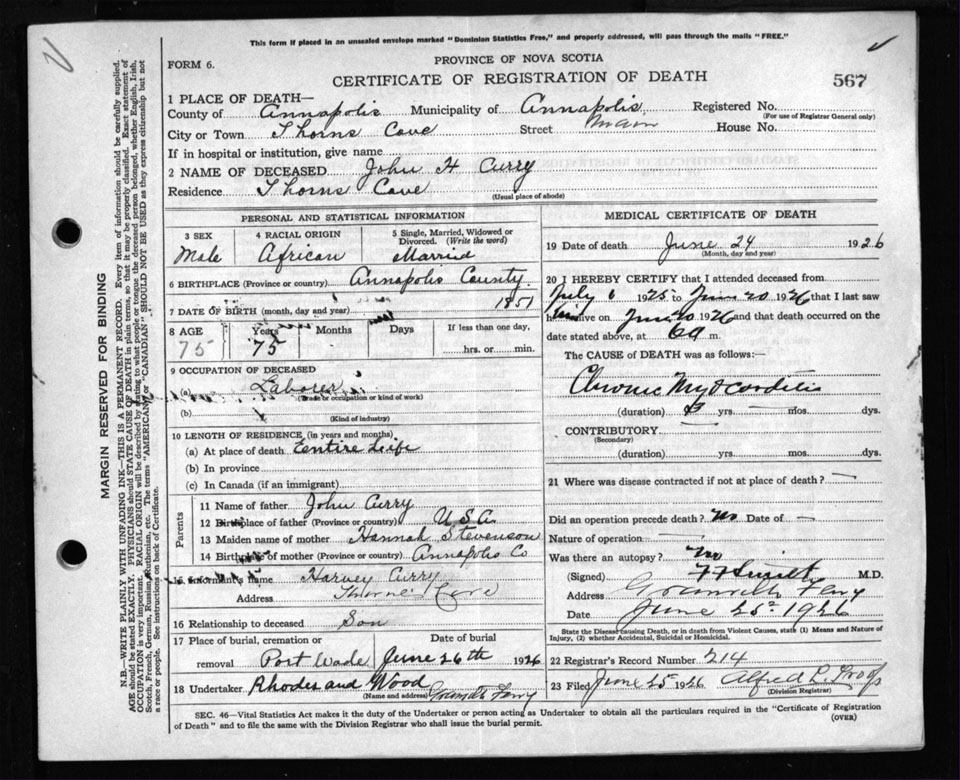 This form if placed in an unsealed envelope marked "Dominion Statistics Free," and properly addressed, will pass through the mails "FREE."
FORM 6.
PROVINCE OF NOVA SCOTIA
CERTIFICATE OF REGISTRATION OF DEATH
567
1 PLACE OF DEATH—
County of Annapolis Municipality of Annapolis Registered No.
(For use of Registrar General only)
City or Town Thorns Cove Street Main House No.
If in hospital or institution, give name
2 NAME OF DECEASED John H Curry
Residence Thorns Cove
(Usual place of abode)
PERSONAL AND STATISTICAL INFORMATION
3 SEX 4 RACIAL ORIGIN 5 Single, Married, Widowed or Divorced. (Write the word)
Male African Married
6 BIRTHPLACE (Province or country) Annapolis County
7 DATE OF BIRTH (month, day and year) 1851
8 AGE Years Months Days If less than one day,
75 75 hrs. or min.
9 OCCUPATION OF DECEASED
(a) Laborer
(Trade or occupation or kind of work)
(b)
(Kind of industry)
10 LENGTH OF RESIDENCE (in years and months)
(a) At place of death Eentire Life
(b) In province
(c) In Canada (if an immigrant)
Parents
11 Name of father John Curry
12 Birthplace of father (Province or country) U.S.A.
13 Maiden name of mother Hannah Stevenson
14 Birthplace of mother (Province or country) Annapolis Co
15 Informant's name Harvey Curry
Address Thorne Cove
16 Relationship to deceased Son
17 Place of burial, cremation or removal Port Wade Date of burial June 26th 1926
18 Undertaker Rhodes and Wood
(Name and address) Granville Ferry
MEDICAL CERTIFICATE OF DEATH
19 Date of death June 24 1926
(Month, day and year)
20 I HEREBY CERTIFY that I attended deceased from
July 6 1925 to June 20 1926 that I last saw
him alive on June 20 1926 and that death occurred on the
date stated above, at 6 a m.
The CAUSE OF DEATH was as follows:
Chronic Myocarditis
(duration) yrs. mos. dys.
CONTRIBUTORY
(Secondary)
(duration) yrs. mos. dys.
21 Where was disease contracted if not at place of death? —
Did an operation precede death? No Date of —
Nature of operation —
Was there an autopsy? No
(Signed) M.D.
Address Granville Ferry
Date June 25th 1926
State the Disease causing Death, or in death from Violent Causes, state (1) Means and Nature of Injury, (2) whether Accidental, Suicidal or Homicidal.
22 Registrar's Record Number 214
23 Filed June 25 1926 Alfred
(Division Registrar)
SEC. 46—Vital Statistics Act makes it the duty of the Undertaker or person acting as Undertaker to obtain all the particulars required in the "Certificate of Registration
of Death" and to file the same with the Division Registrar who shall issue the burial permit.
(OVER)
MARGIN RESERVED FOR BINDING
N.B.—WRITE PLAINLY WITH UNFADING INK—THIS IS A PERMANENT RECORD. Every item of information should be carefully supplied.
AGE should be stated EXACTLY. PHYSICIANS should STATE CAUSE OF DEATH in plain terms, so that it may be properly classified. Exact statement of
OCCUPATION is very important. RACIAL ORIGIN will be described by stating to what people or tongue the deceased person belonged, whether English, Irish,
Scotch, French, German, Russian, Ruthenian, etc. The terms "AMERICAN" or "CANADIAN" SHOULD NOT BE USED as they express citizenship but not
a race or people. See instructions on back of Certificate.